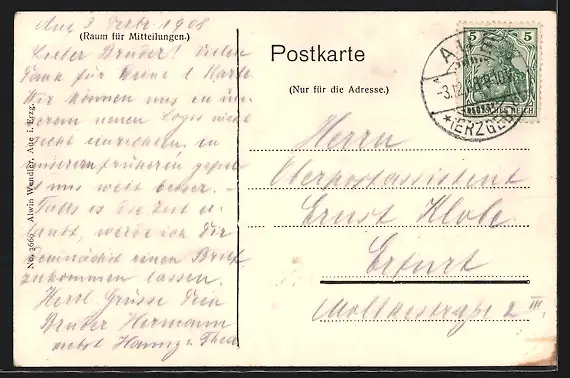 Aue 3 Dezbr. 1908
(Raum für Mitteilungen.)
Lieber Bruder! Vielen
Dank für Deine l. Karte
Wir können uns in un-
serem neuen Logis nicht
recht einrichten, in
unserem früheren gefiel
es uns weit besser. –
Falls es die Zeit er-
laubt, werde ich Dir
demnächst einen Brief
zukommen lassen.
Herzl. Grüsse Dein
Bruder Hermann
nebst Hanny u. Thea
No. 3660 Alwin Wendler, Aue i. Erzg.
Postkarte
(Nur für die Adresse.)
5 5
DEUTSCHES REICH
AUE
-3.12.
*(ERZGEB.)
Herrn
Oberpostassistent
Ernst Klobe
Erfurt
Moltkestraße 2 III.